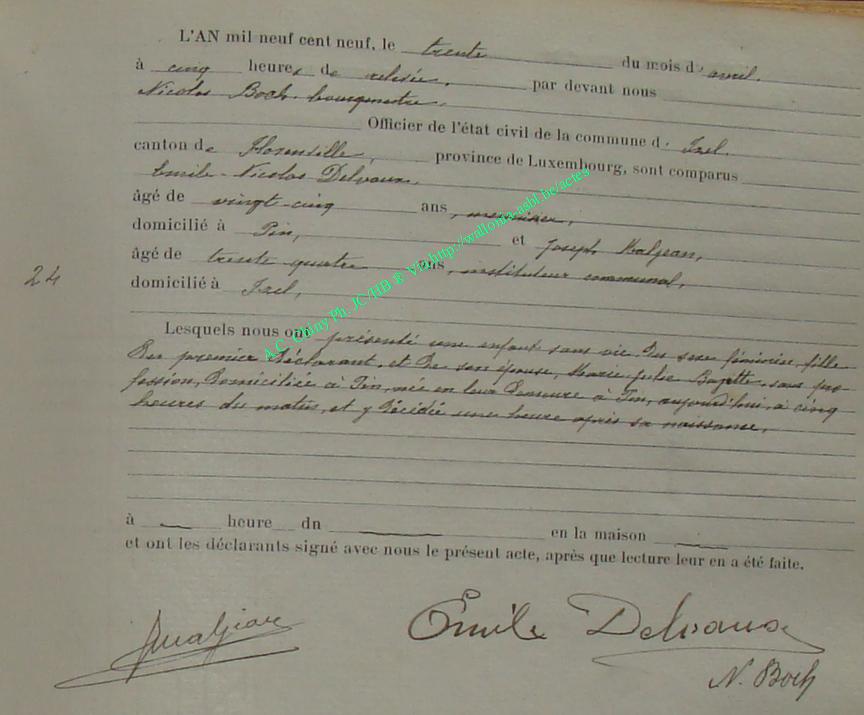 L'AN mil neuf cent neuf, le trente du mois d'avril.
à cinq heures de relevée, par devant nous
Nicolas Boch, bourgmestre,
Officier de l'état civil de la commune d'Izel.
canton de Florenville, province de Luxembourg, sont comparus
Emile-Nicolas Delvaux,
âgé de vingt-cinq ans, menuisier,
domicilié à Pin, et Joseph Maljean,
âgé de trente quatre ans, instituteur communal,
24
domicilié à Izel,
Lesquels nous ont présenté une enfant sans vie, du sexe féminin, fille
du premier déclarant, et de son épouse, Marie Julie sans pro-
fession, domiciliée à Pin, née en leur demeure à Pin, aujourd'hui, à cinq
heures du matin, et y décédée une heure après sa naissance.
à heure du en la maison
et ont les déclarants signé avec nous le présent acte, après que lecture leur en a été faite.
JMaljean
Emile Delvaux
N. Boch
A.C. Chiny Ph. JC/HB & VB http://wallonia-asbl.be/actes